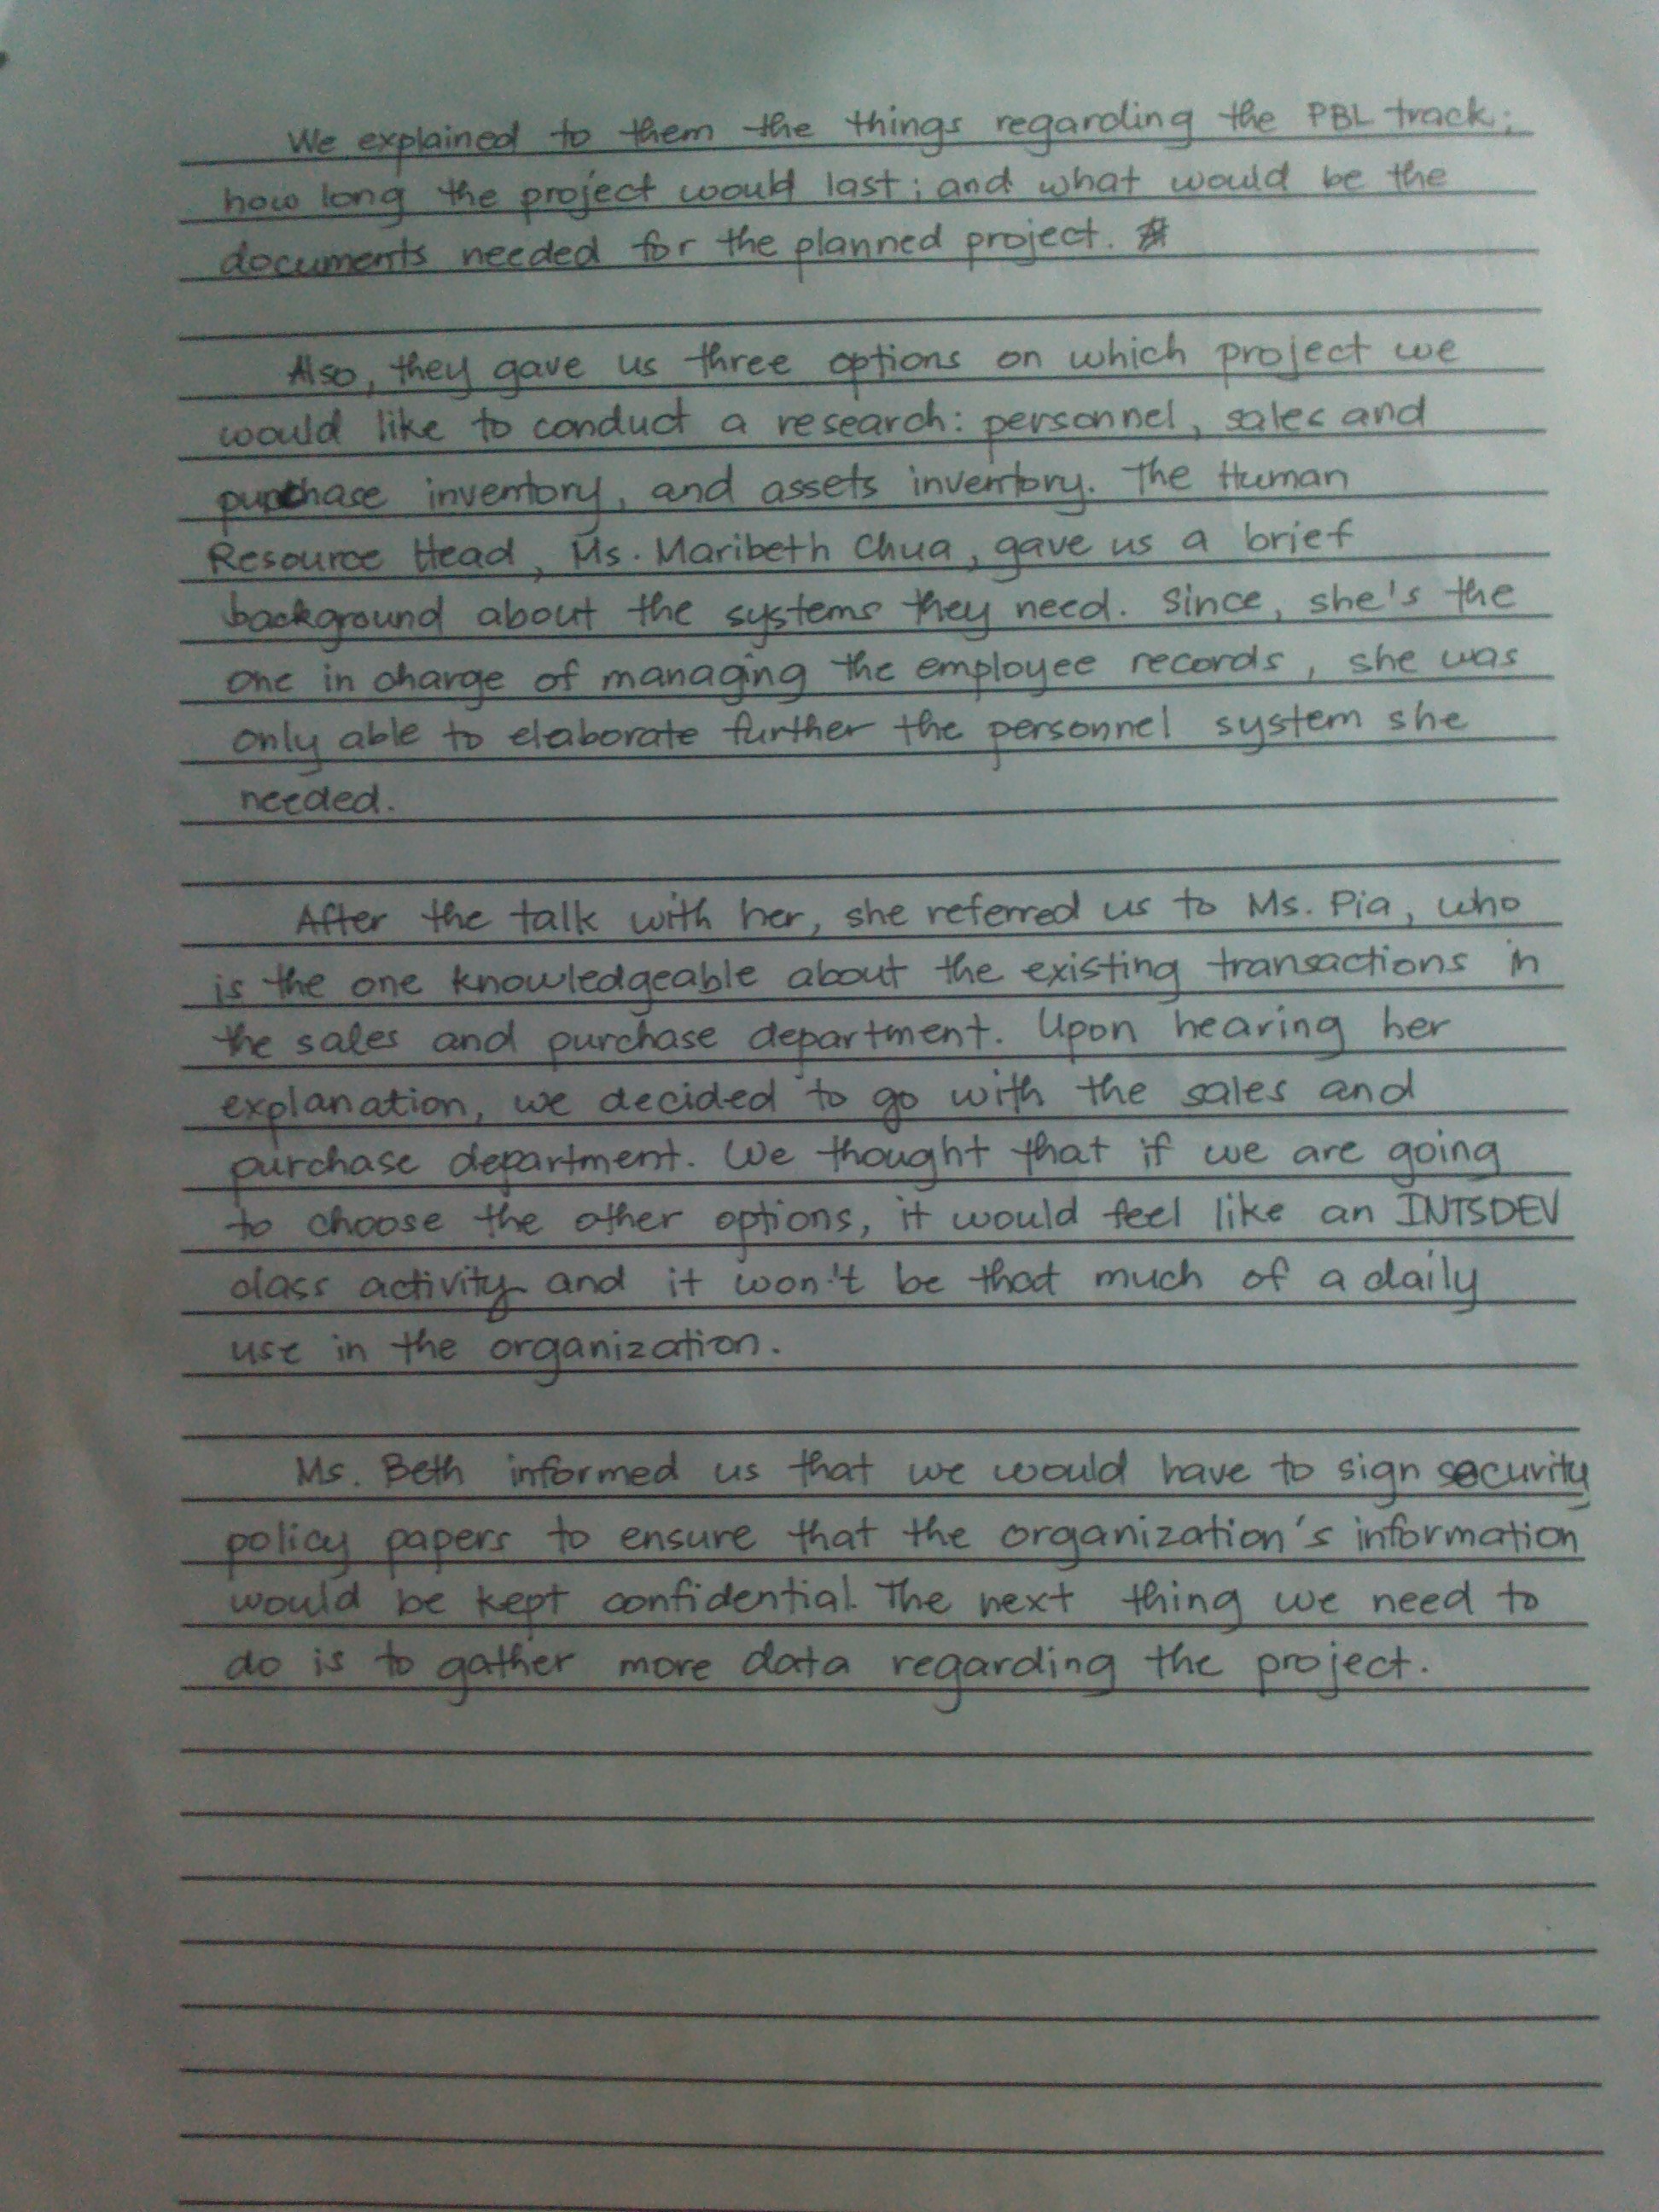 We explained to them the things regarding the PBL track;
how long the project would last; and what would be the
documents needed for the planned project.
Also, they gave us three options on which project we
would like to conduct a research: personnel, sales and
purchase inventory, and assets inventory. The Human
Resource Head, Ms. Maribeth Chua, gave us a brief
background about the systems they need. Since, she's the
one in charge of managing the employee records, she was
only able to elaborate further the personnel system she
needed.
After the talk with her, she referred us to Ms. Pia, who
is the one knowledgeable about the existing transactions in
the sales and purchase department. Upon hearing her
explanation, we decided to go with the sales and
purchase department. We thought that if we are going
to choose the other options, it would feel like an INTSDEV
class activity and it won't be that much of a daily
use in the organization.
Ms. Beth informed us that we would have to sign security
policy papers to ensure that the organization's information
would be kept confidential. The next thing we need to
do is to gather more data regarding the project.